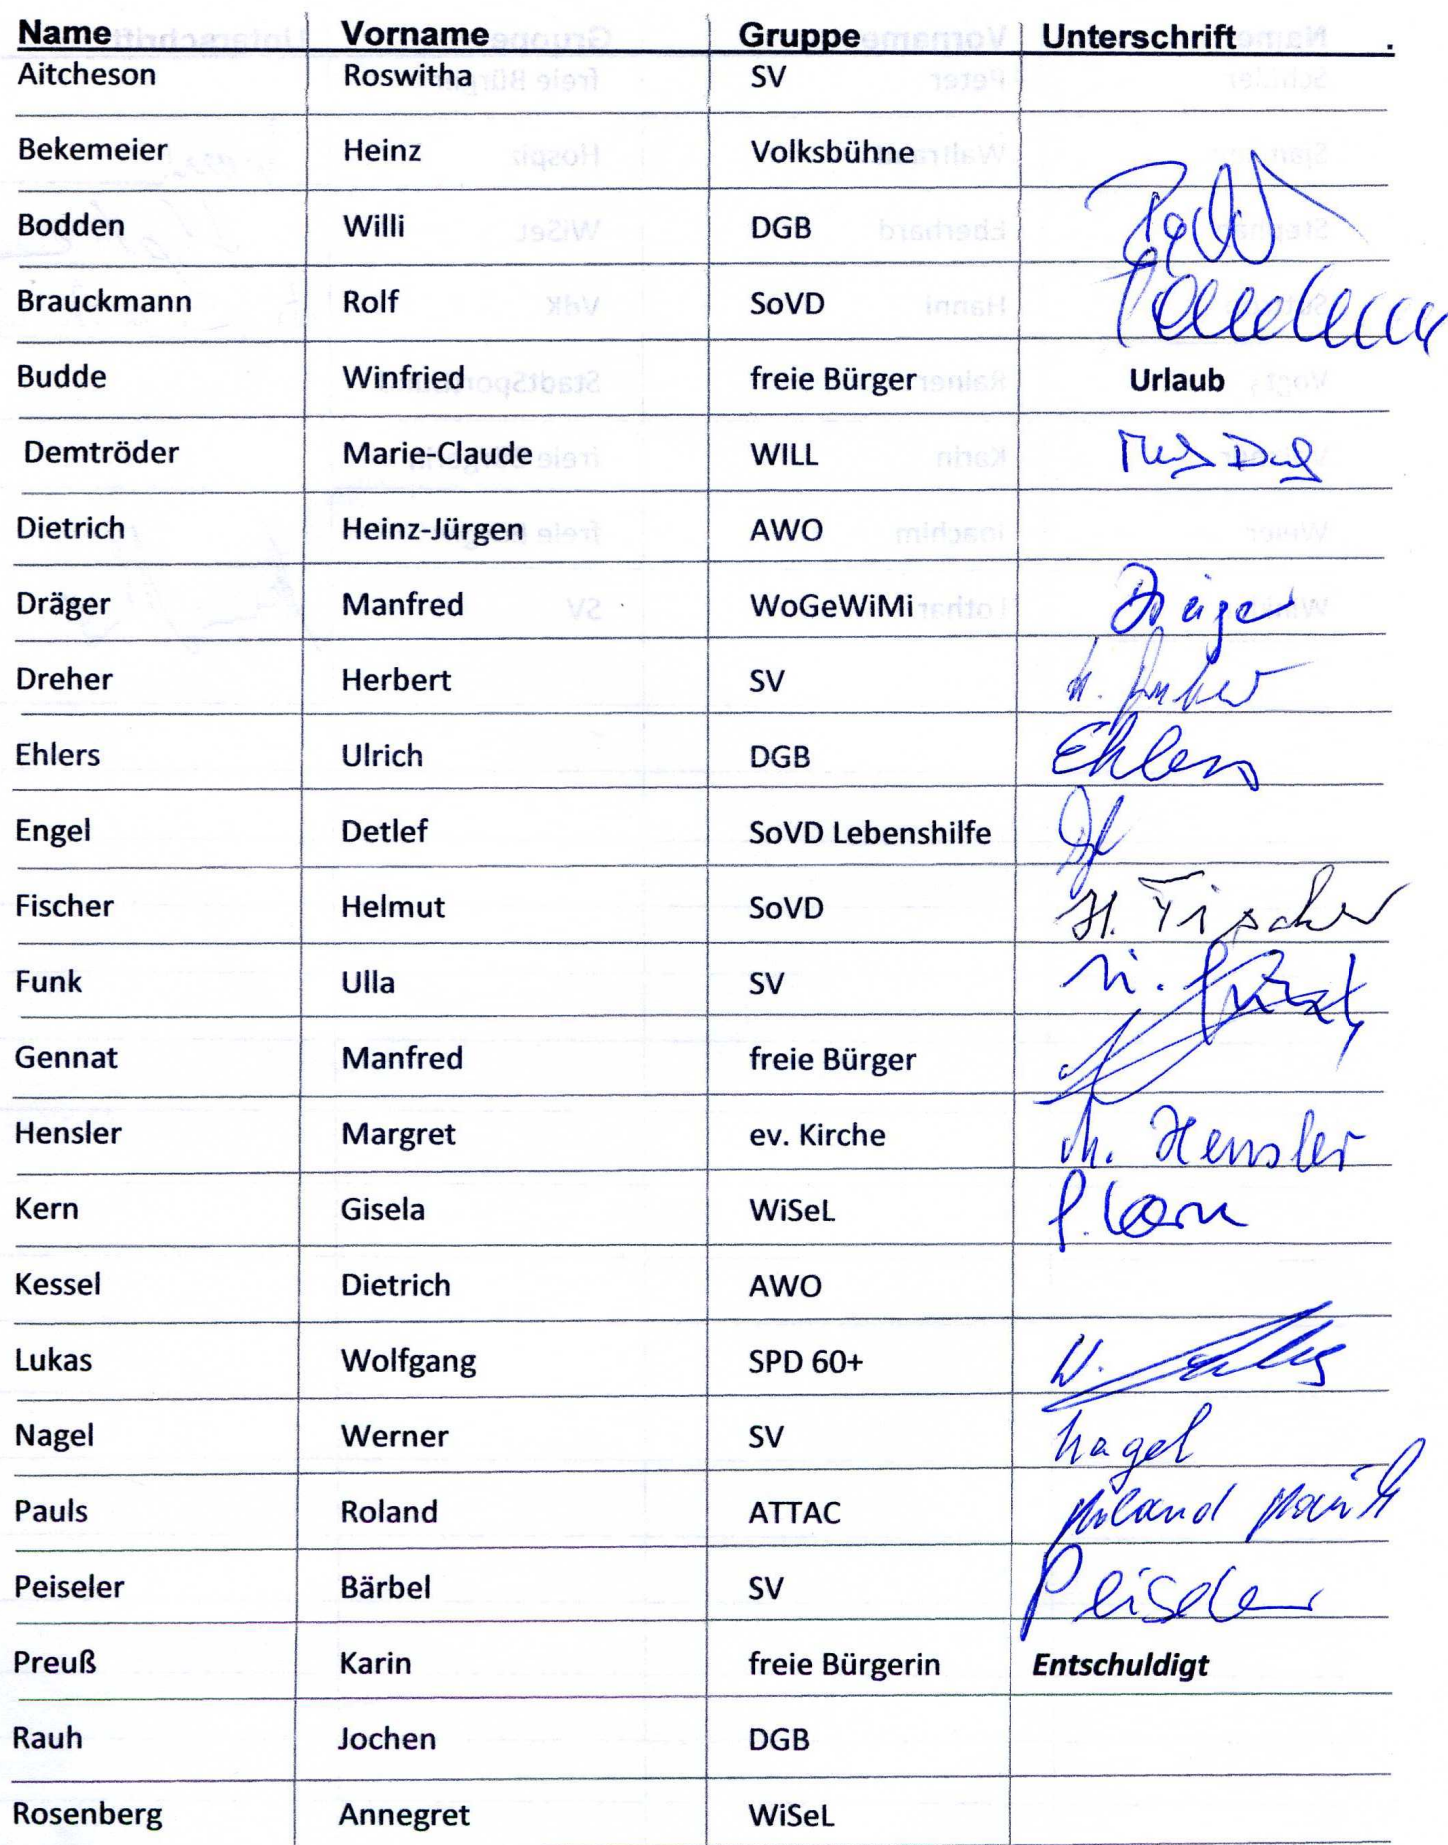 Name Vorname Gruppe Unterschrift .
Aitcheson Roswitha SV
Bekemeier Heinz Volksbühne
Bodden Willi DGB
Brauckmann Rolf SoVD
Budde Winfried freie Bürger Urlaub
Demtröder Marie-Claude WILL
Dietrich Heinz-Jürgen AWO
Dräger Manfred WoGeWiMi Dräger
Dreher Herbert SV
Ehlers Ulrich DGB Ehlers
Engel Detlef SoVD Lebenshilfe
Fischer Helmut SoVD H. Fischer
Funk Ulla SV
Gennat Manfred freie Bürger
Hensler Margret ev. Kirche M. Hensler
Kern Gisela WiSeL G. Kern
Kessel Dietrich AWO
Lukas Wolfgang SPD 60+ W.
Nagel Werner SV Nagel
Pauls Roland ATTAC Roland Pauls
Peiseler Bärbel SV Peiseler
Preuß Karin freie Bürgerin Entschuldigt
Rauh Jochen DGB
Rosenberg Annegret WiSeL